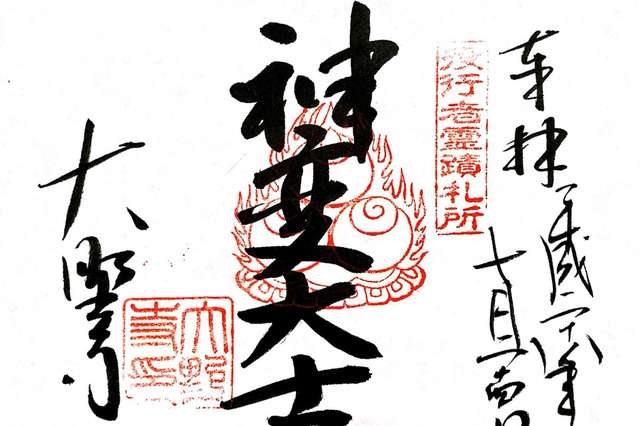 奉拝 平成二十八年
七月
役行者靈蹟札所
神変大士
大野寺
大野
寺印